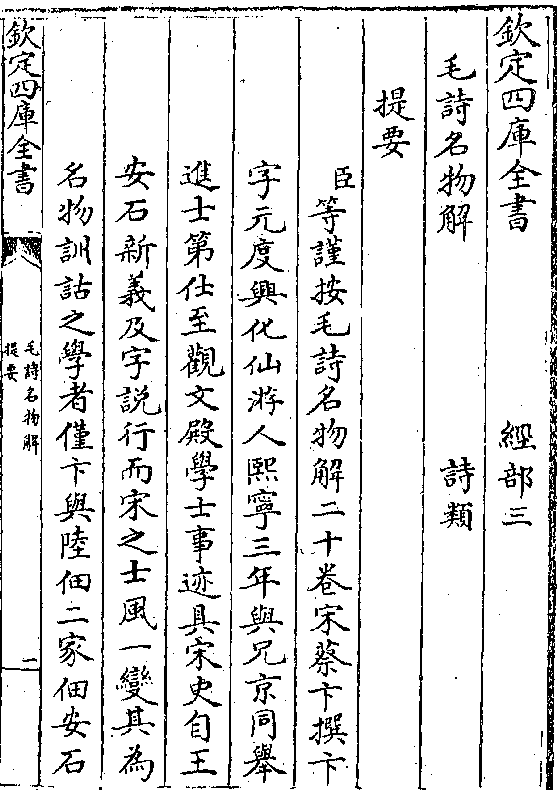 欽定四庫全書　經部三
毛詩名物解　詩類
提要
臣等謹按毛詩名物解二十卷宋蔡卞撰卞
字元度興化仙游人熙寧三年與兄京同舉
進士第仕至觀文殿學士事迹具宋史自王
安石新義及字說行而宋之士風一變其為
名物訓詁之學者僅卞與陸佃二家佃安石
欽定四庫全書
毛詩名物解
提要
二